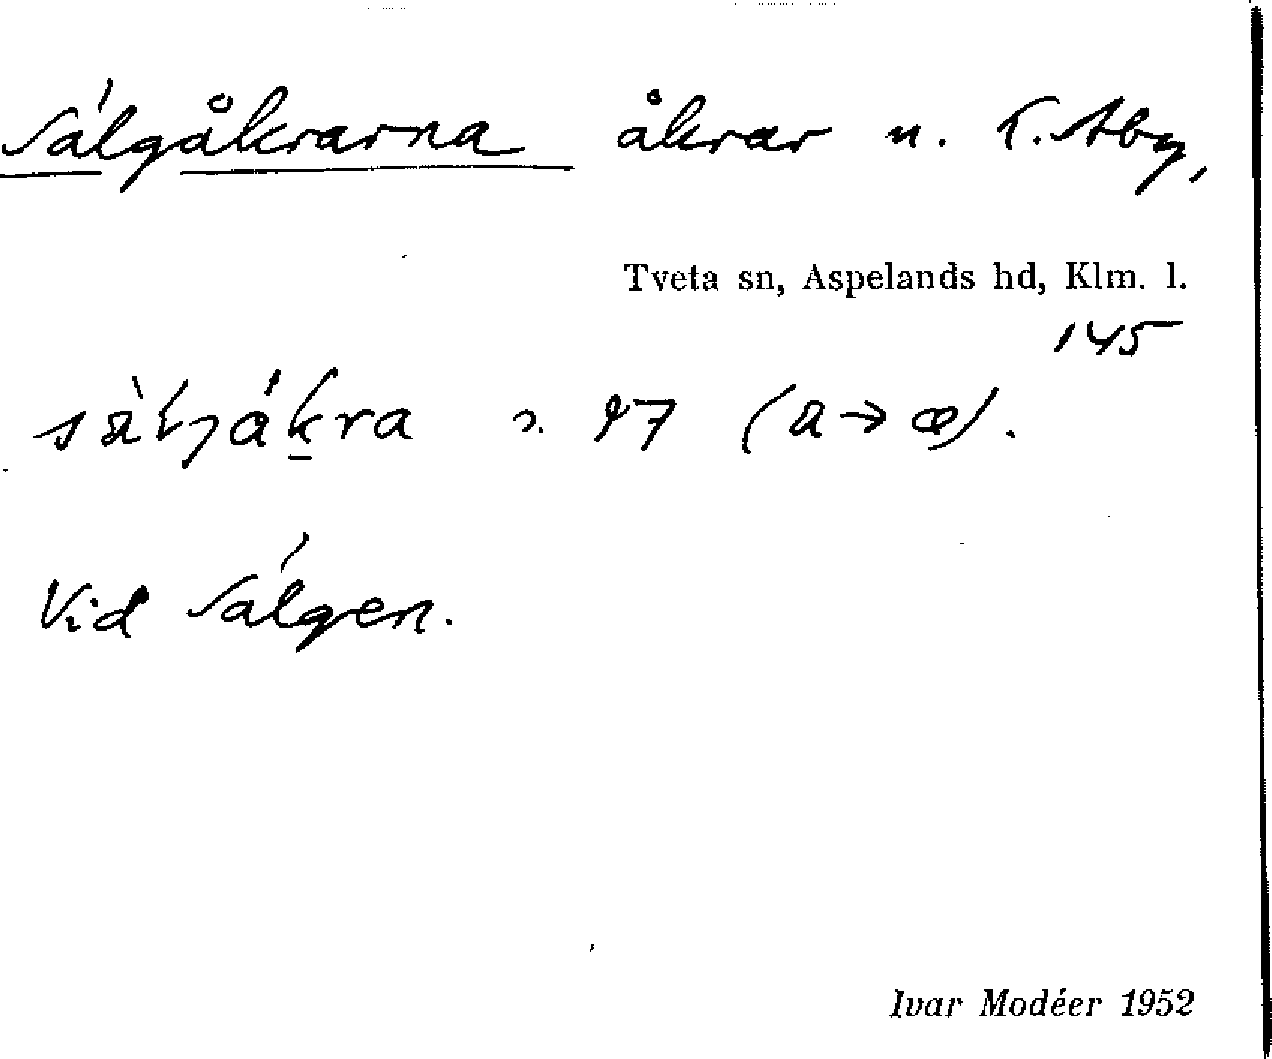 Sálgåkrarna åkrar n. T. Åby,
Tveta sn, Aspelands hd, Klm. l.
145
(a → æ).
Vid Sálgen.
Ivar Modéer 1952